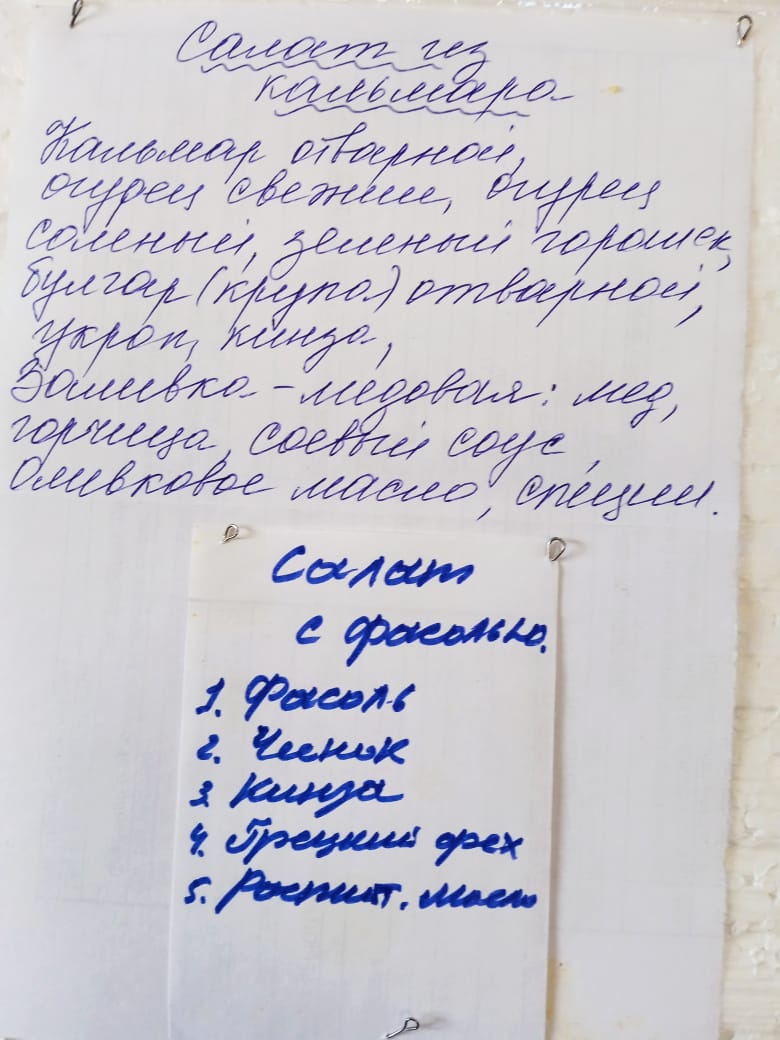 Салат из
кальмара
Кальмар отварной,
огурец свежий, огурец
соленый, зеленый горошек,
булгар (крупа) отварной,
укроп, кинза,
Заливка - медовая: мед,
горчица, соевый соус,
Оливковое масло, специи.
Салат
с фасолью.
1. Фасоль
2. Чеснок
3. Кинза
4. Грецкий орех
5. Растит. масло